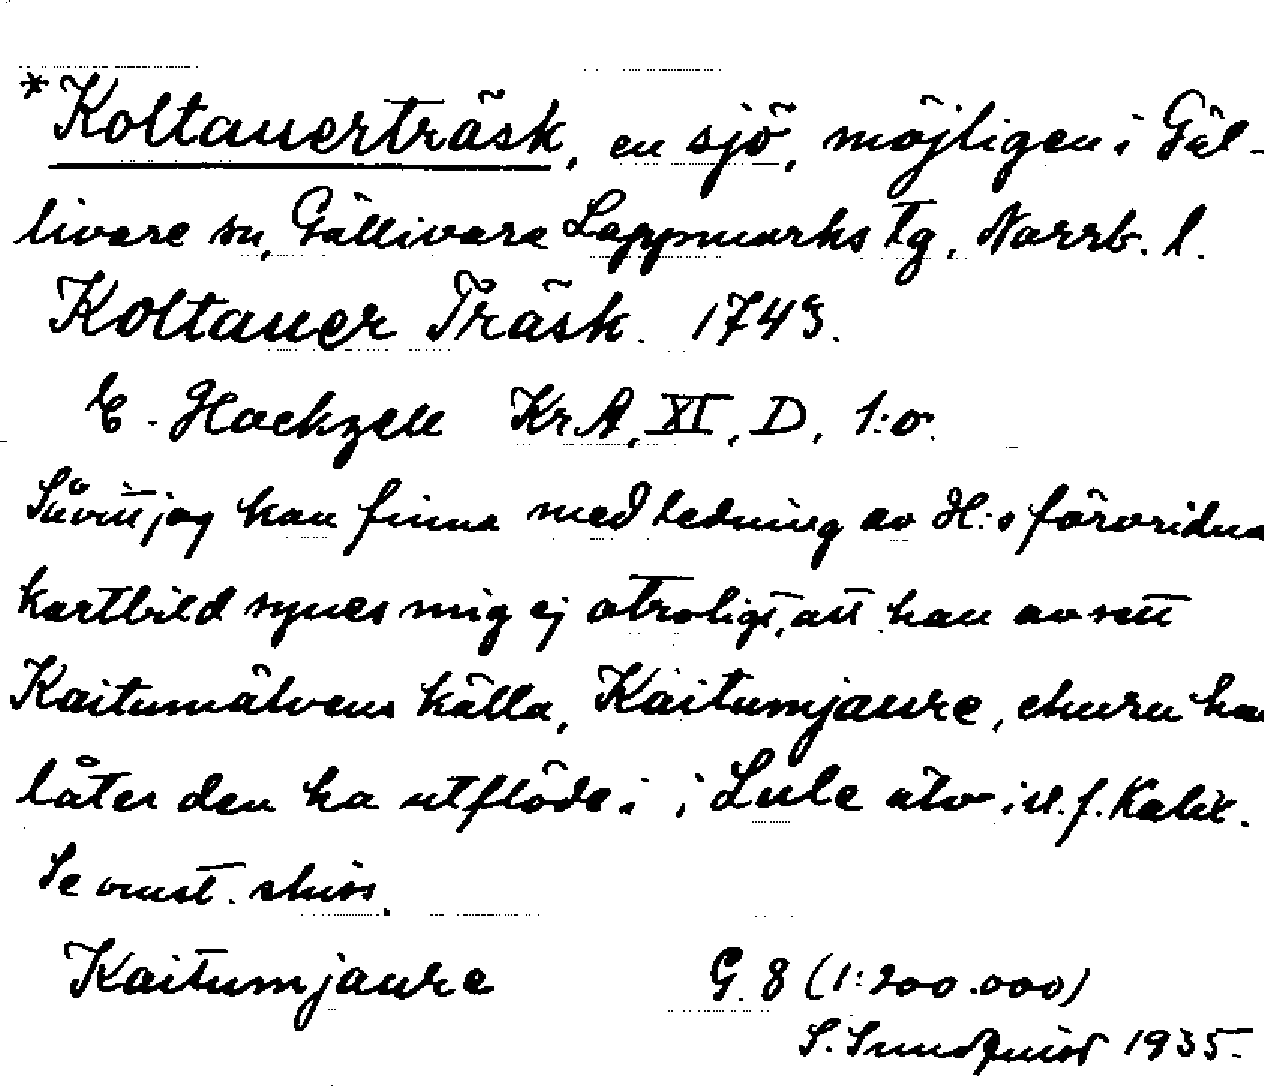 *Koltauerträsk, en sjö, möjligen i Gäl-
livare sn, Gällivare Lappmarks tg, Norrb. l.
Koltauer Träsk. 1743.
E. Hackzell KrA, XI, D, 1:o.
Såvitt jag kan finna med ledning av H:s förvridna
kartbild synes mig ej otroligt, att han avsett
Kaitumälvens källa, Kaitumjaure, ehuru ha
låter den ha utflöde i Lule älv i st. f. Kalix.
Se omst. skiss.
Kaitumjaure G. 8 (1:200.000)
S. Sundquist 1935.